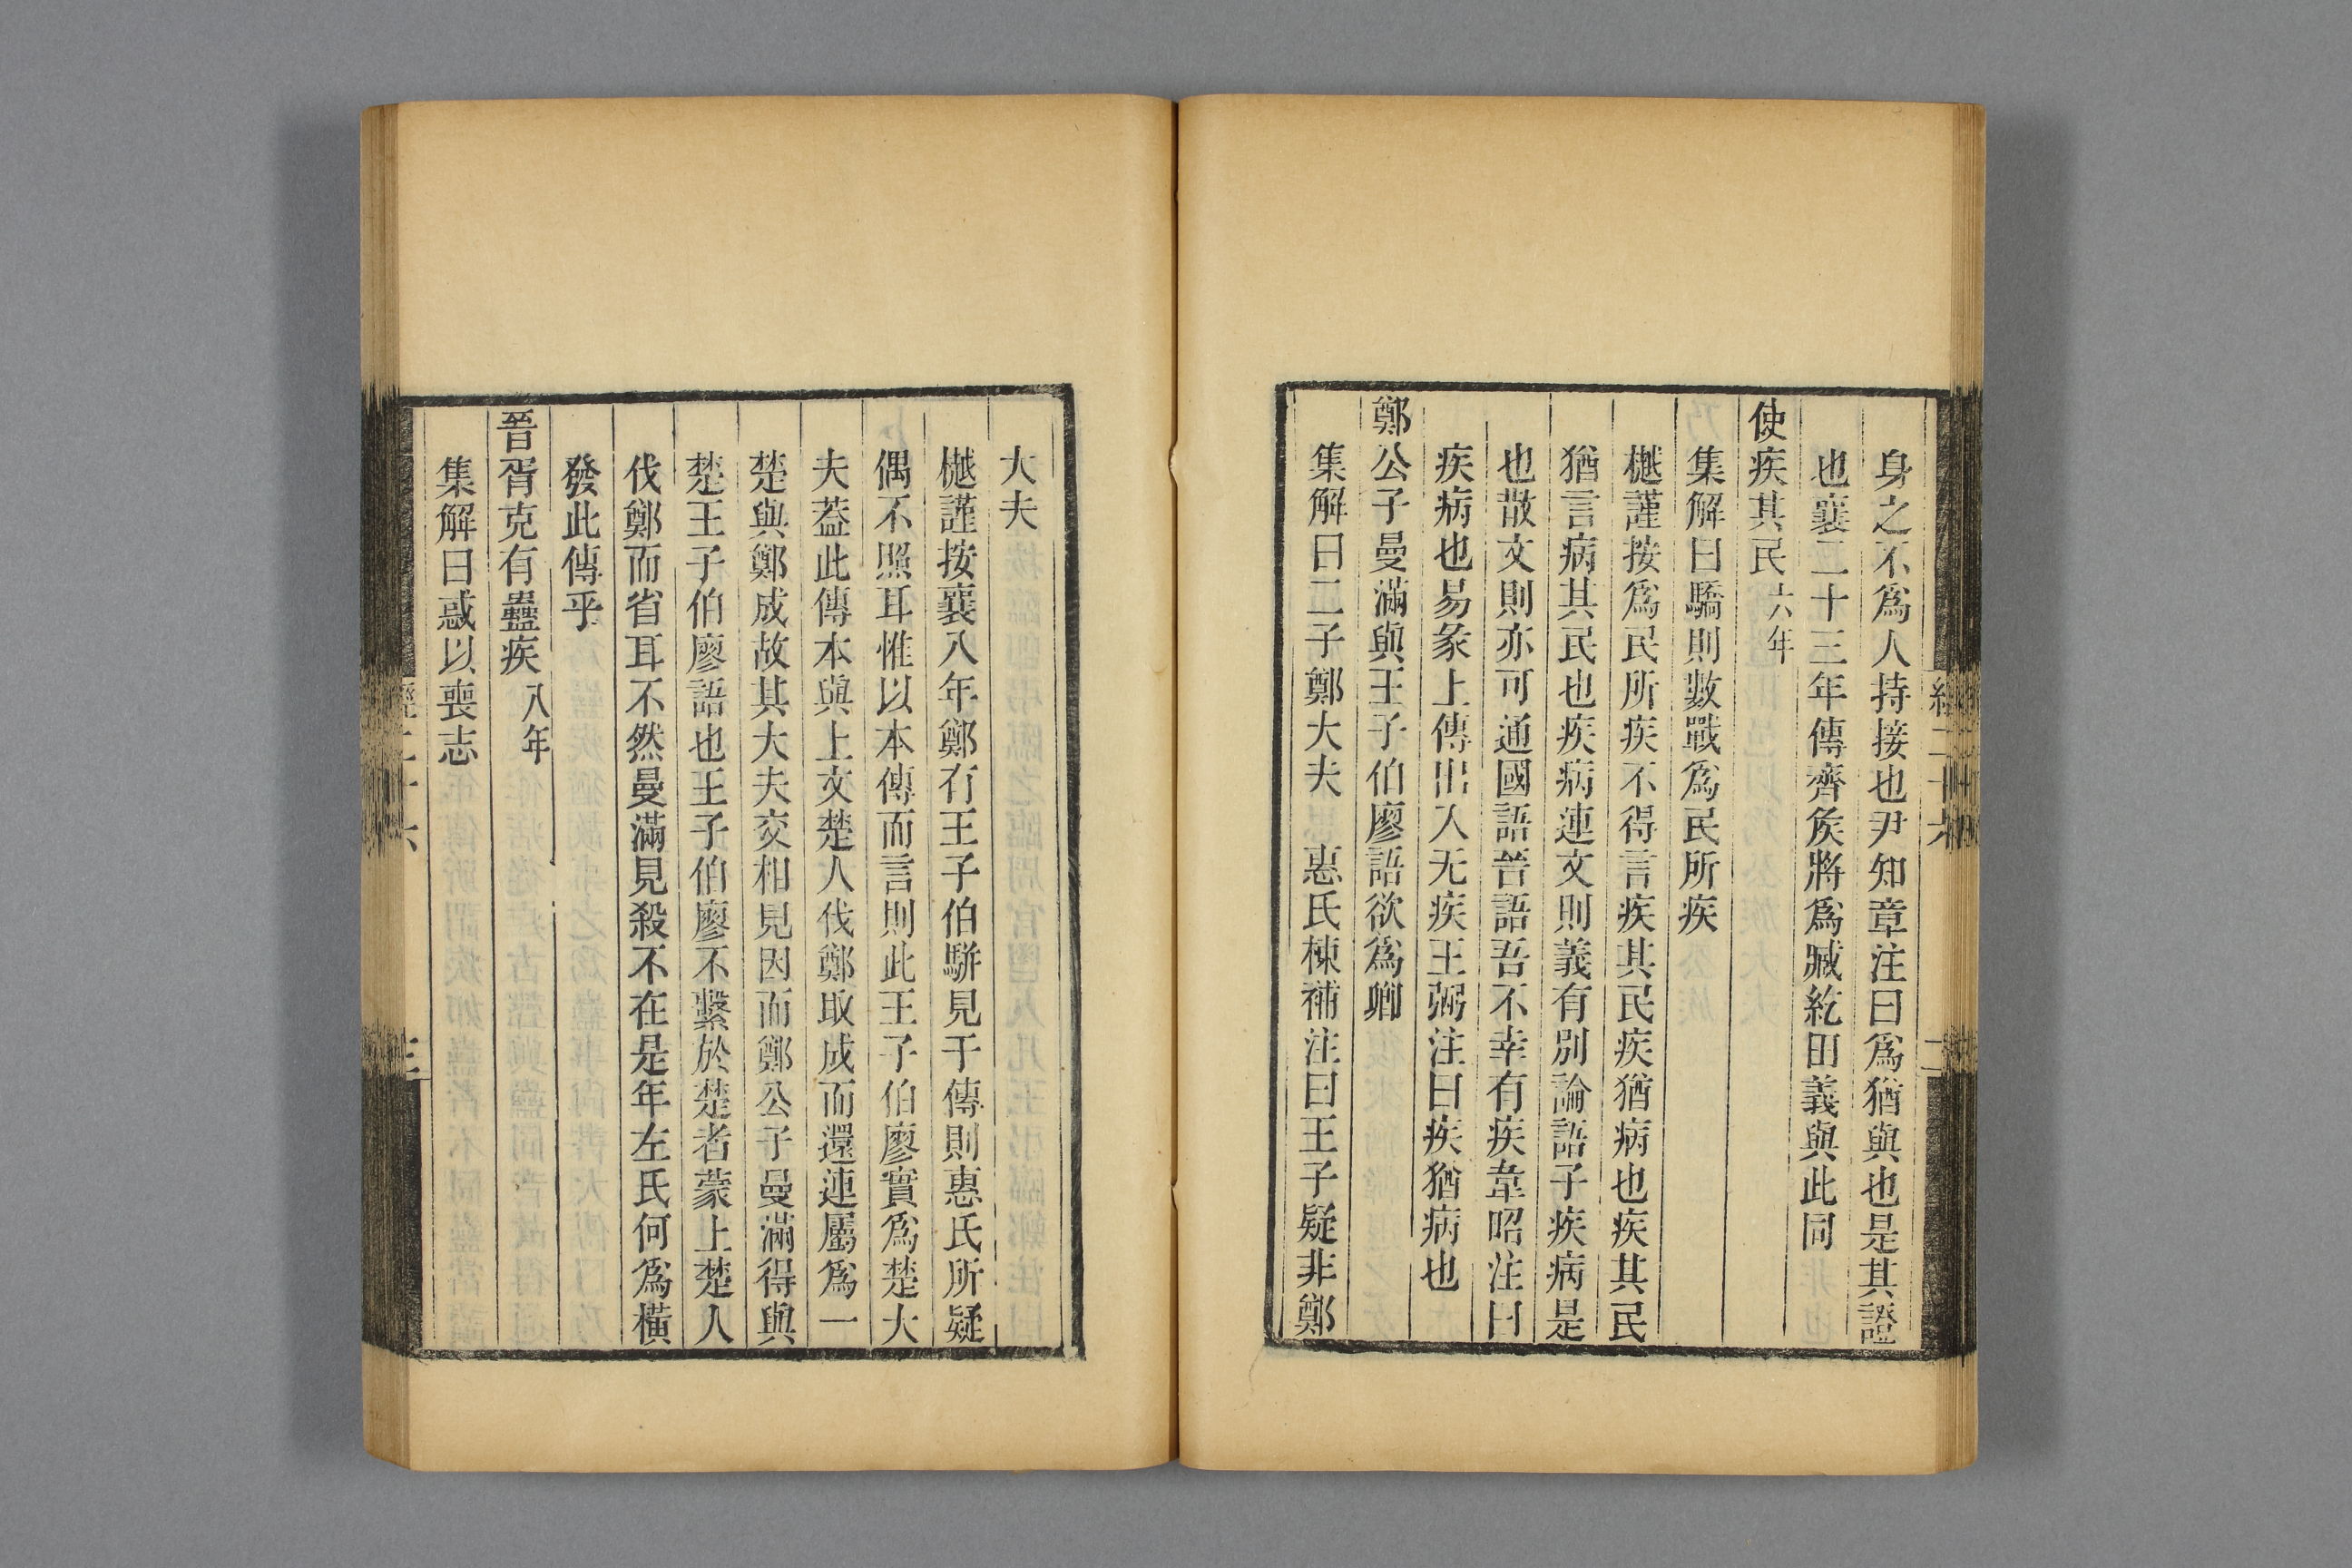 身之不爲人持接也尹知章注曰爲猶與也是其證
也襄二十三年傳齊矦將爲臧紇田義與此同
使疾其民六年
集解曰驕則數戰爲民所疾
樾謹按爲民所疾不得言疾其民疾猶病也疾其民
猶言病其民也疾病連文則義有別論語子疾病是
也散文則亦可通國語晉語吾不幸有疾韋昭注曰
疾病也易彖上傳出入无疾王弼注曰疾猶病也
鄭公子曼滿與王子伯廖語欲爲卿
集解曰二子鄭大夫 惠氏棟補注曰王子疑非鄭
大夫
樾謹按襄八年鄭有王子伯駢見于傳則惠氏所疑
偶不照耳惟以本傳而言則此王子伯廖實爲楚大
夫葢此傳本與上文楚人伐鄭取成而還連屬爲一
楚與鄭成故其大夫交相見因而鄭公子曼滿得與
楚王子伯廖語也王子伯廖不繫於楚者蒙上楚人
伐鄭而省耳不然曼滿見殺不在是年左氏何爲橫
發此傳乎
晉胥克有蠱疾八年
集解曰惑以喪志
經二十六
三